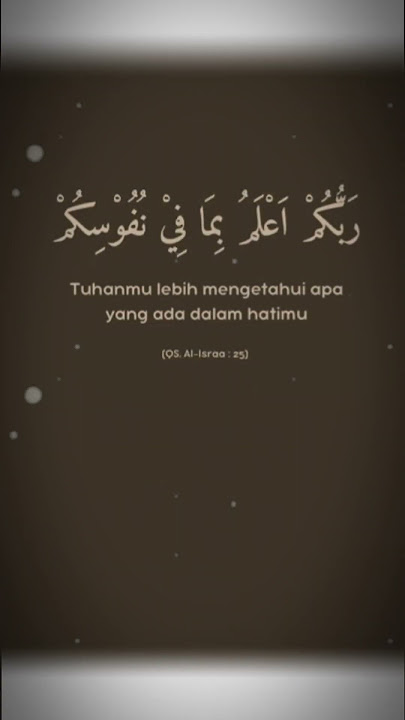 رَبُّكُمْ اَعْلَمُ بِمَا فِيْ نُفُوْسِكُمْ
Tuhanmu lebih mengetahui apa
yang ada dalam hatimu
(QS. Al-Israa : 25)